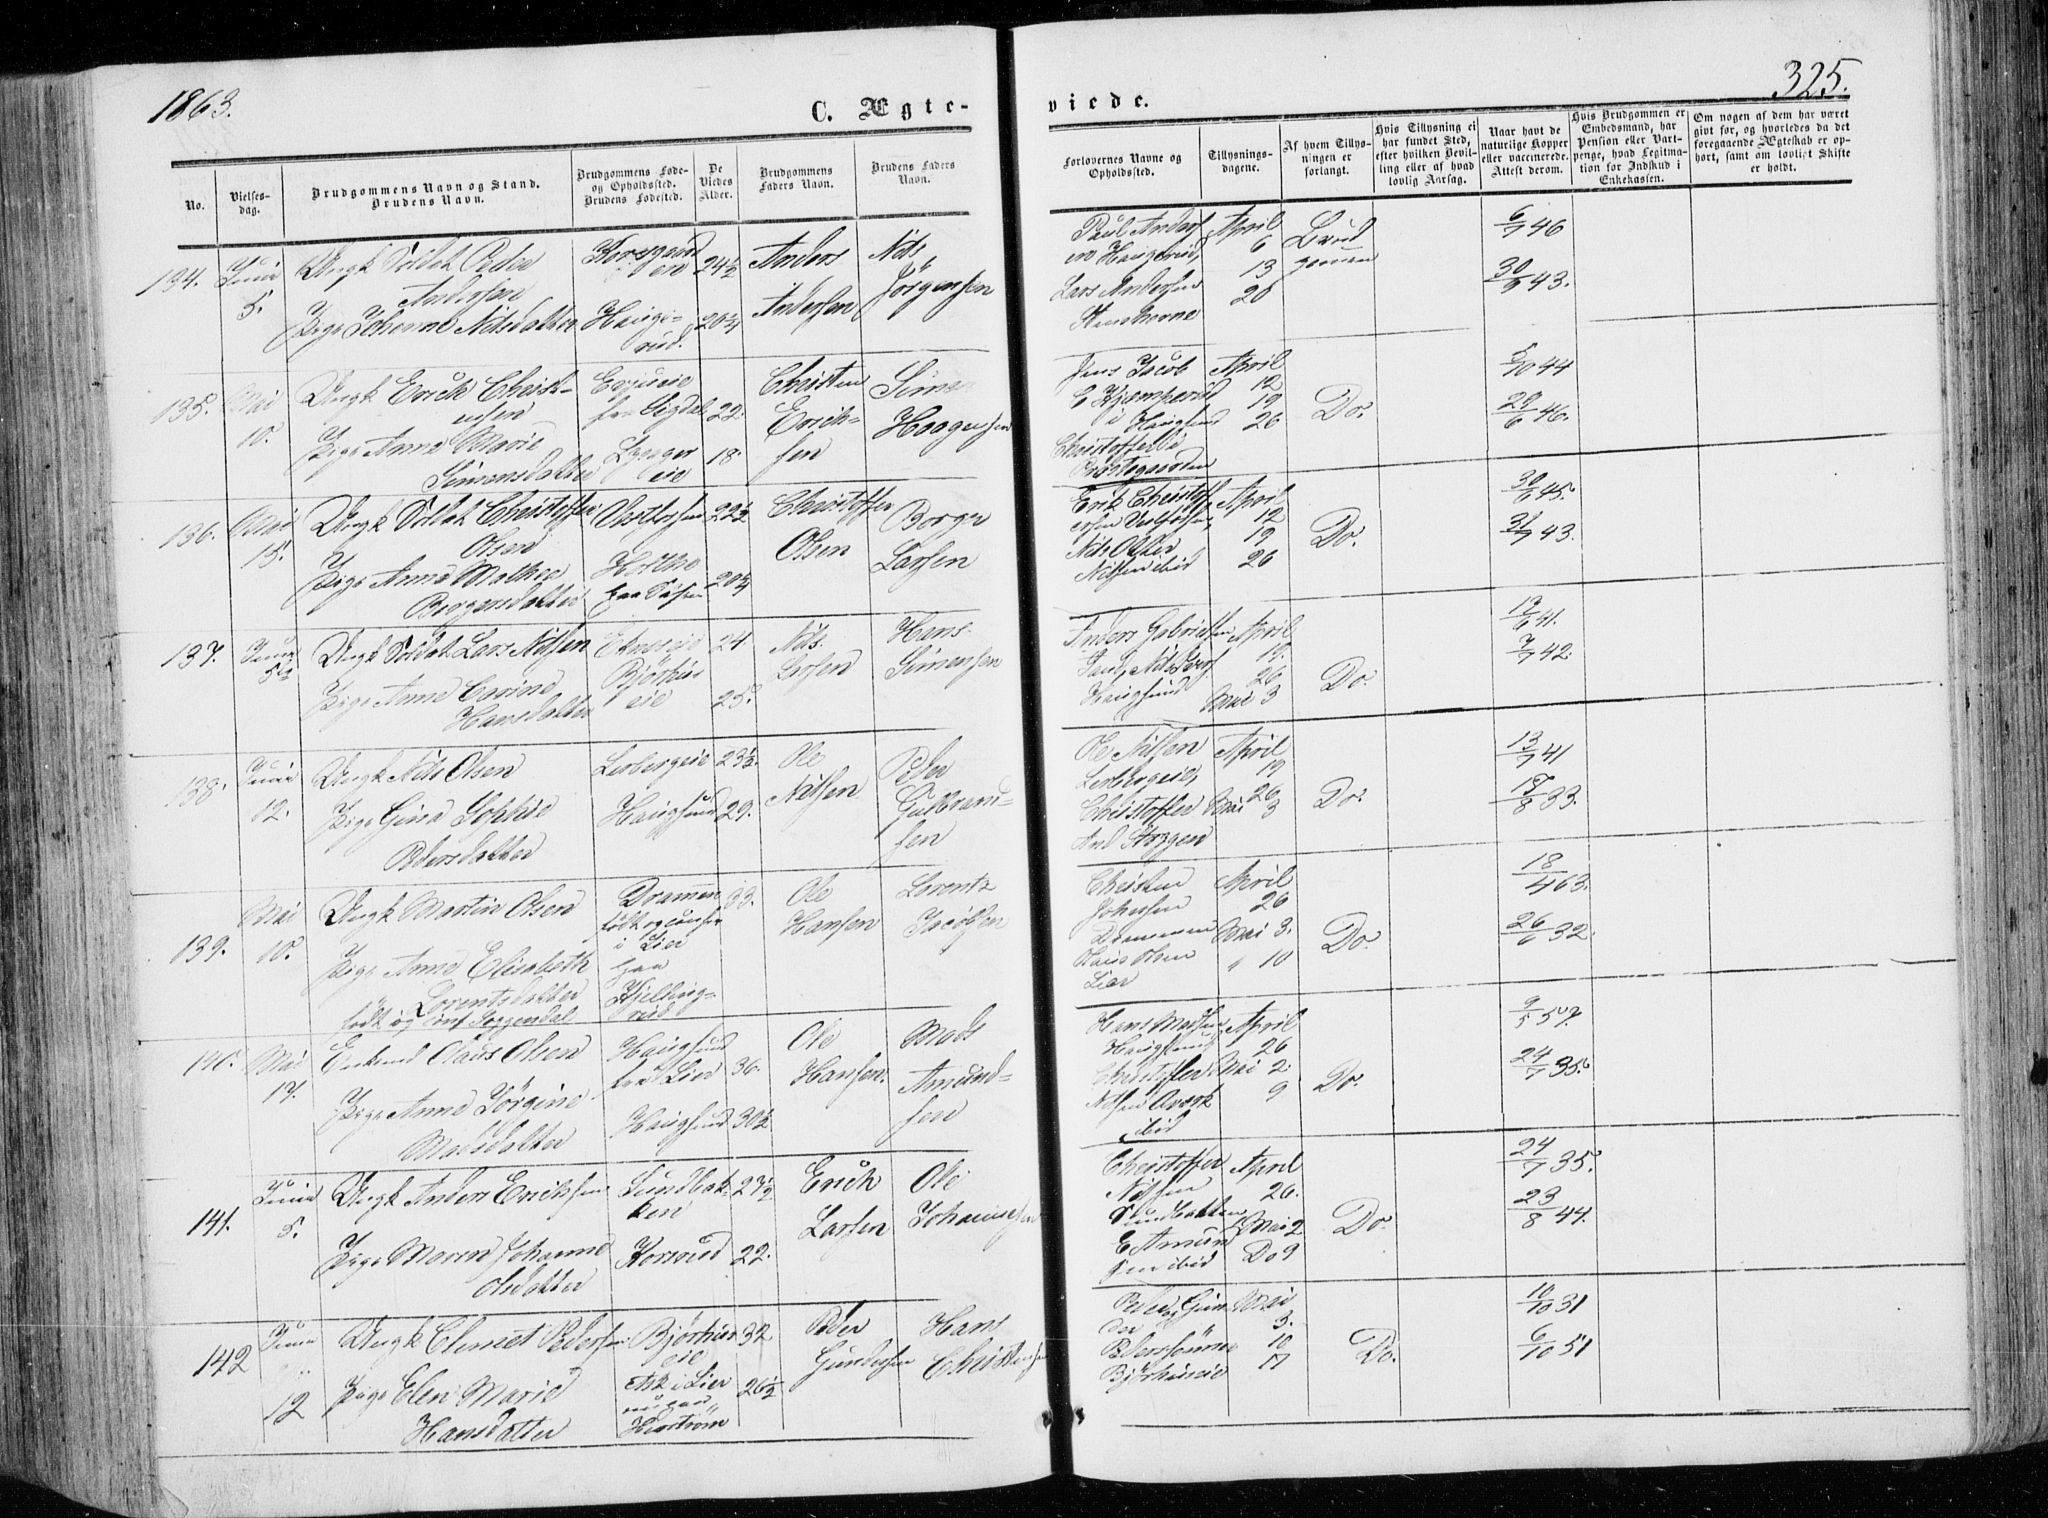 1863.
C. Ægte-
viede.
325.
No.
Vielses-
dag.
Brudgommens Navn og Stand.
Brudens Navn.
Brudgommens Føde-
og Opholdssted.
Brudens Fødested.
De
Viedes
Alder.
Brudgommens
Faders Navn.
Brudens Faders
Navn.
Forlovernes Navne og
Opholdssted.
Tillysnings-
dagene.
Af hvem Tillys-
ningen er
forlangt.
Hvis Tillysning ei
har fundet Sted,
efter hvilken Bevil-
ling eller af hvad
lovlig Aarsag.
Naar havt de
naturlige Kopper
eller vaccinerede.
Attest derom.
Hvis Brudgommen er
Embedsmand, har
Pension eller Vart-
penge, hvad Legitima-
tion for Indskud i
Enkekassen.
Om nogen af dem har været
givt før, og hvorledes da det
foregaaende Ægteskab er op-
hørt, samt om lovligt Skifte
er holdt.
134.
Juni
5.
Ungk Soldat Peder
Andersen
Pige Johanne Nilsdatter
Haugs-
rud.
24½
20¼
Anders
Andersen
Nils
Jörgensen
Paul Anders
Lars Andersen
April
6
13
26
Brud
gommen
6/7 46
30/9 43.
135.
Mai
10.
Ungk Erich Christ-
ensen
Pige Anne Marie
Simensdatter
fra Sigdal
eie
22.
18.
Christen
Erich-
sen
Simen
Haagensen
Jens Jacob
i Haugsund
April
12
19
26
Do.
5/10 44
29/6 46.
136.
Mai
15.
Ungk Soldat Christoffer
Olsen
Pige Anne Mathea
Borgersdatter
22½
20¼
Christoffer
Olsen
Borger
Larsen
Erik Christoff
Nils Olsen
Nilsen ibid
April
12
19
26
Do.
30/6 45.
31/7 43.
137.
Juni
5
Ungk Soldat Lars Nilsen
Pige Anne Carine
Hansdatter
Björhus
eie
24.
25.
Nils
Larsen
Hans
Simensen
Anders Gabrielsen
Haugsund
April
19.
26
Mai 3
Do.
12/6 41.
7/7 42.
138.
Juni
12.
Ungk Nils Olsen
Pige Gina Sophie
Pedersdatter
Lerbergeie
Haugsund
23½.
29.
Ole
Nilsen
Peder
Gulbrand-
sen
Ole Nilsen
Lerbergeie,
Christoffer
April
19
26
Mai 3
Do.
13/7 41
17/8 33.
139.
Mai
10.
Ungk Martin Olsen
Pige Anne Elisabeth
Lorentsdatter
Drammen
i Lier
fra
33.
Ole
Hansen
Lorentz
Jacobsen
Christen
Johnsen
Drammen
Hans Olsen
Lier
April
26
Mai 3.
" 10
Do.
18/4 63.
26/6 32.
140.
Mai
17.
Enkemd Claus Olsen
Pige Anne Jörgine
Madsdatter
Haugsund
fra Lier
Haugsund
36.
30½
Ole
Hansen.
Mads
Amund-
sen
Hans Madsen
Haugsund
Christoffer
Nilsen
ibid
April
26
Mai 2.
9
Do.
9/5 57.
24/7 35.
141.
Juni
5.
Ungk Anders Erichsen
Pige Maren Johanne
Olsdatter
Sundbak-
ken
Korsrud
23½
22.
Erich
Larsen
Ole
Johannesen
Christoffer
Nilsen
Sundbakken
E Amund
sen ibid
April
26.
Mai 2
Do 9
Do.
24/7 35.
23/8 44.
142
Juni
"
12
Ungk Clemet Pedersen
Pige Elen Marie
Hansdatter
Björhus
eie
Ask i Lier
32
26½
Peder
Gundersen
Hans
Christensen
Peder og Gun
der
Pederssönner
Björhuseie
Mai
3.
10
17
Do.
10/10 31
6/10 51